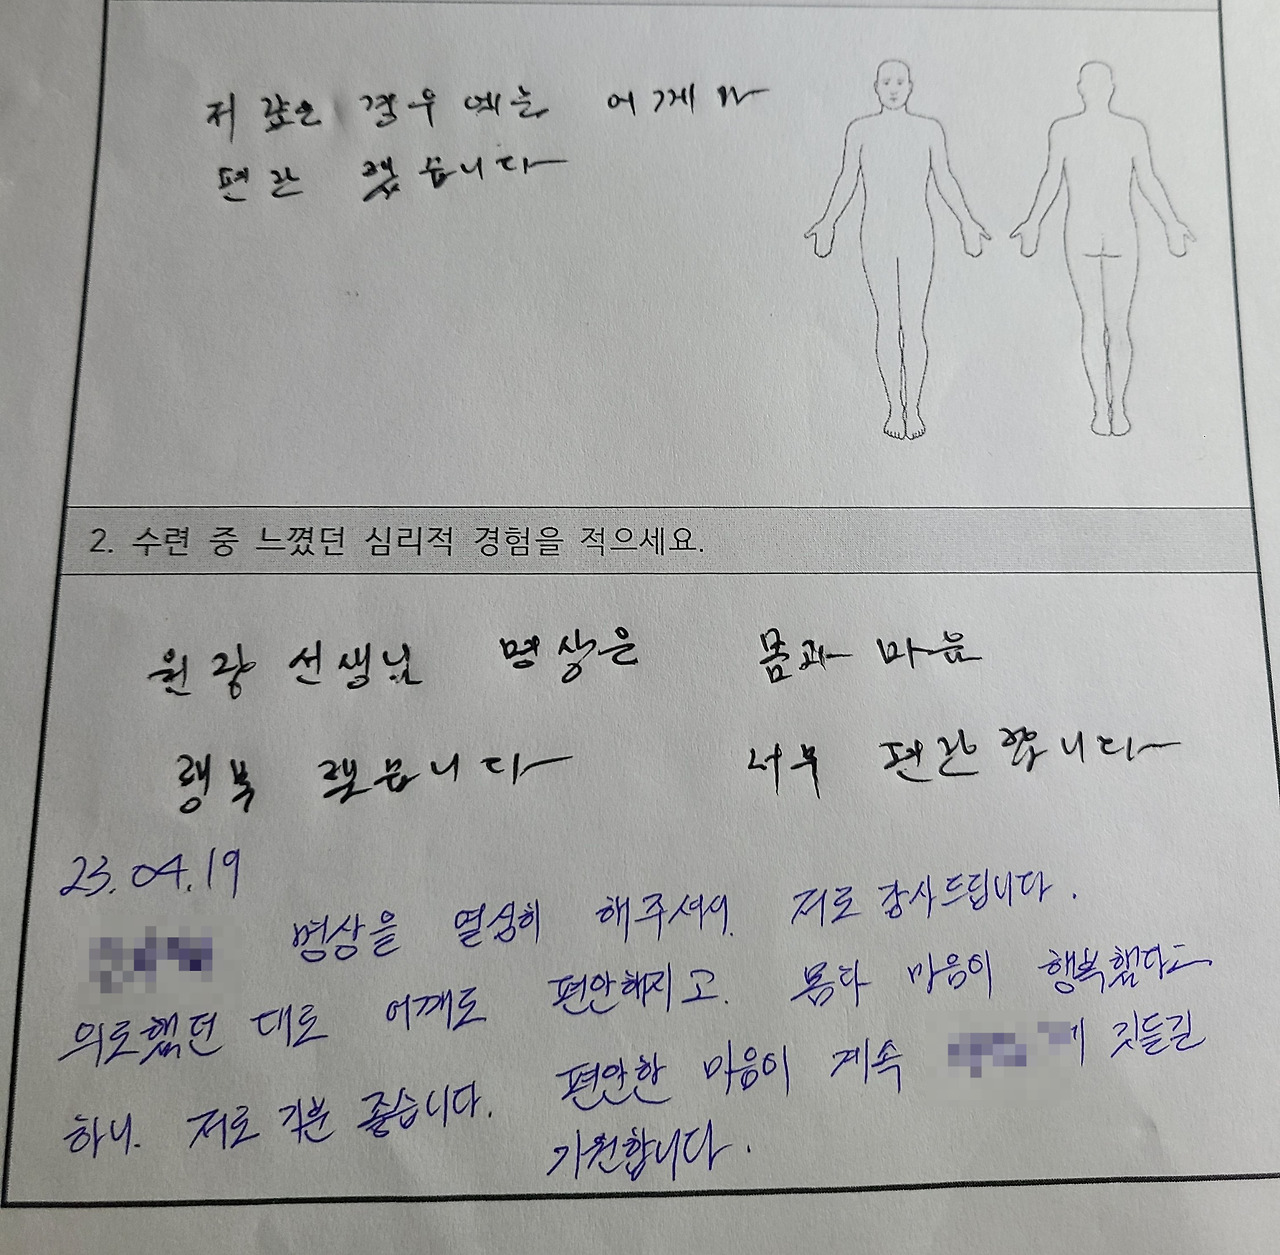 저 같은 경우에는 어게가
편간 했습니다
2. 수련 중 느꼈던 심리적 경험을 적으세요.
원장 선생님 명상은 몸과 마음
행복 했습니다 너무 편간합니다
23.04.19
명상을 열심히 해주셔서 저로 감사드립니다.
의로했던 대로 어깨도 편안해지고. 몸과 마음이 행복했다고
하니. 저로 기분 좋습니다. 편안한 마음이 계속 께 깃들길
기원합니다.